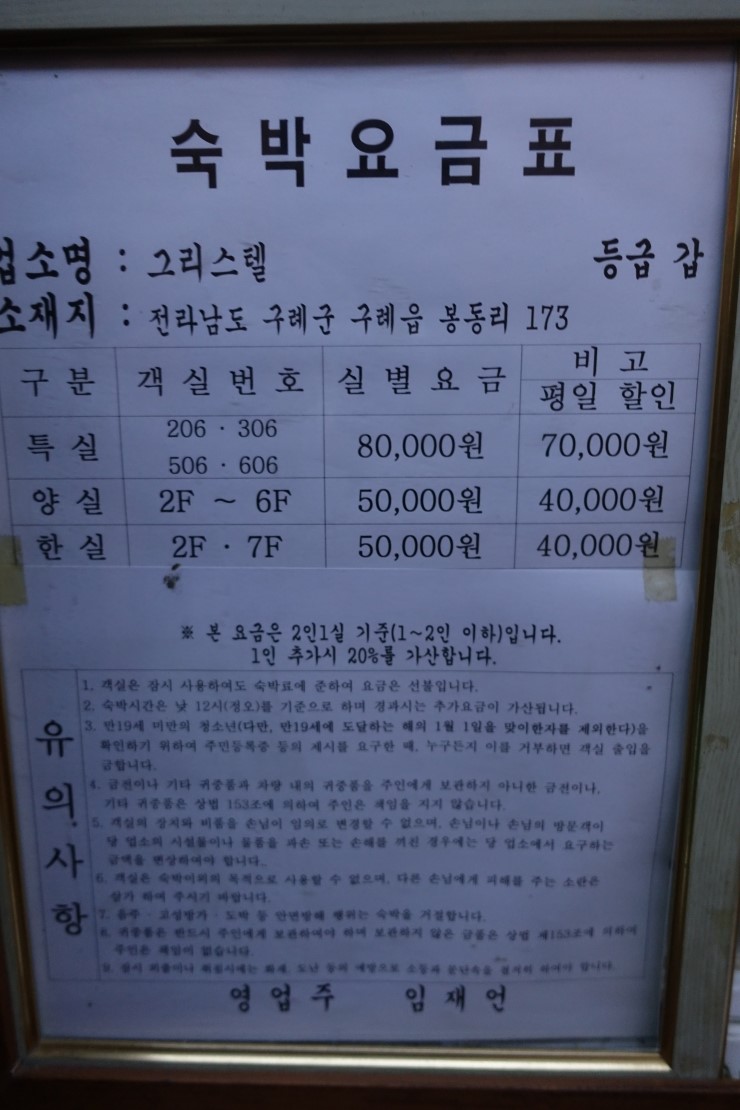 숙박요금표
업소명 : 그리스텔 등급 갑
소재지 : 전라남도 구례군 구례읍 봉동리 173
구분 객실번호 실별요금 비고
평일 할인
특실 206 · 306 80,000원 70,000원
506 · 606
양실 2F ~ 6F 50,000원 40,000원
한실 2F · 7F 50,000원 40,000원
※ 본 요금은 2인1실 기준(1~2인 이하)입니다.
1인 추가시 20%를 가산합니다.
유의사항
1. 객실은 잠시 사용하여도 숙박료에 준하여 요금은 선불입니다.
2. 숙박시간은 낮 12시(정오)를 기준으로 하며 경과시는 추가요금이 가산됩니다.
3. 만19세 미만의 청소년(다만, 만19세에 도달하는 해의 1월 1일을 맞이한자를 제외한다)을
확인하기 위하여 주민등록증 등의 제시를 요구한 때, 누구든지 이를 거부하면 객실 출입을
금합니다.
4. 금전이나 기타 귀중품과 차량 내의 귀중품을 주인에게 보관하지 아니한 금전이나,
기타 귀중품은 상법 153조에 의하여 주인은 책임을 지지 않습니다.
5. 객실의 장치와 비품을 손님이 임의로 변경할 수 없으며, 손님이나 손님의 방문객이
당 업소의 시설물이나 물품을 파손 또는 손해를 끼친 경우에는 당 업소에서 요구하는
금액을 변상하여야 합니다.
6. 객실은 숙박이외의 목적으로 사용할 수 없으며, 다른 손님에게 피해를 주는 소란은
삼가 하여 주시기 바랍니다.
7. 음주 · 고성방가 · 도박 등 안면방해 행위는 숙박을 거절합니다.
8. 귀중품은 반드시 주인에게 보관하여야 하며 보관하지 않은 금품은 상법 제153조에 의하여
주인은 책임이 없습니다.
9. 잠시 외출이나 취침시에는 화재, 도난 등의 예방으로 소등과 문단속을 하여야 합니다.
영업주 임재언